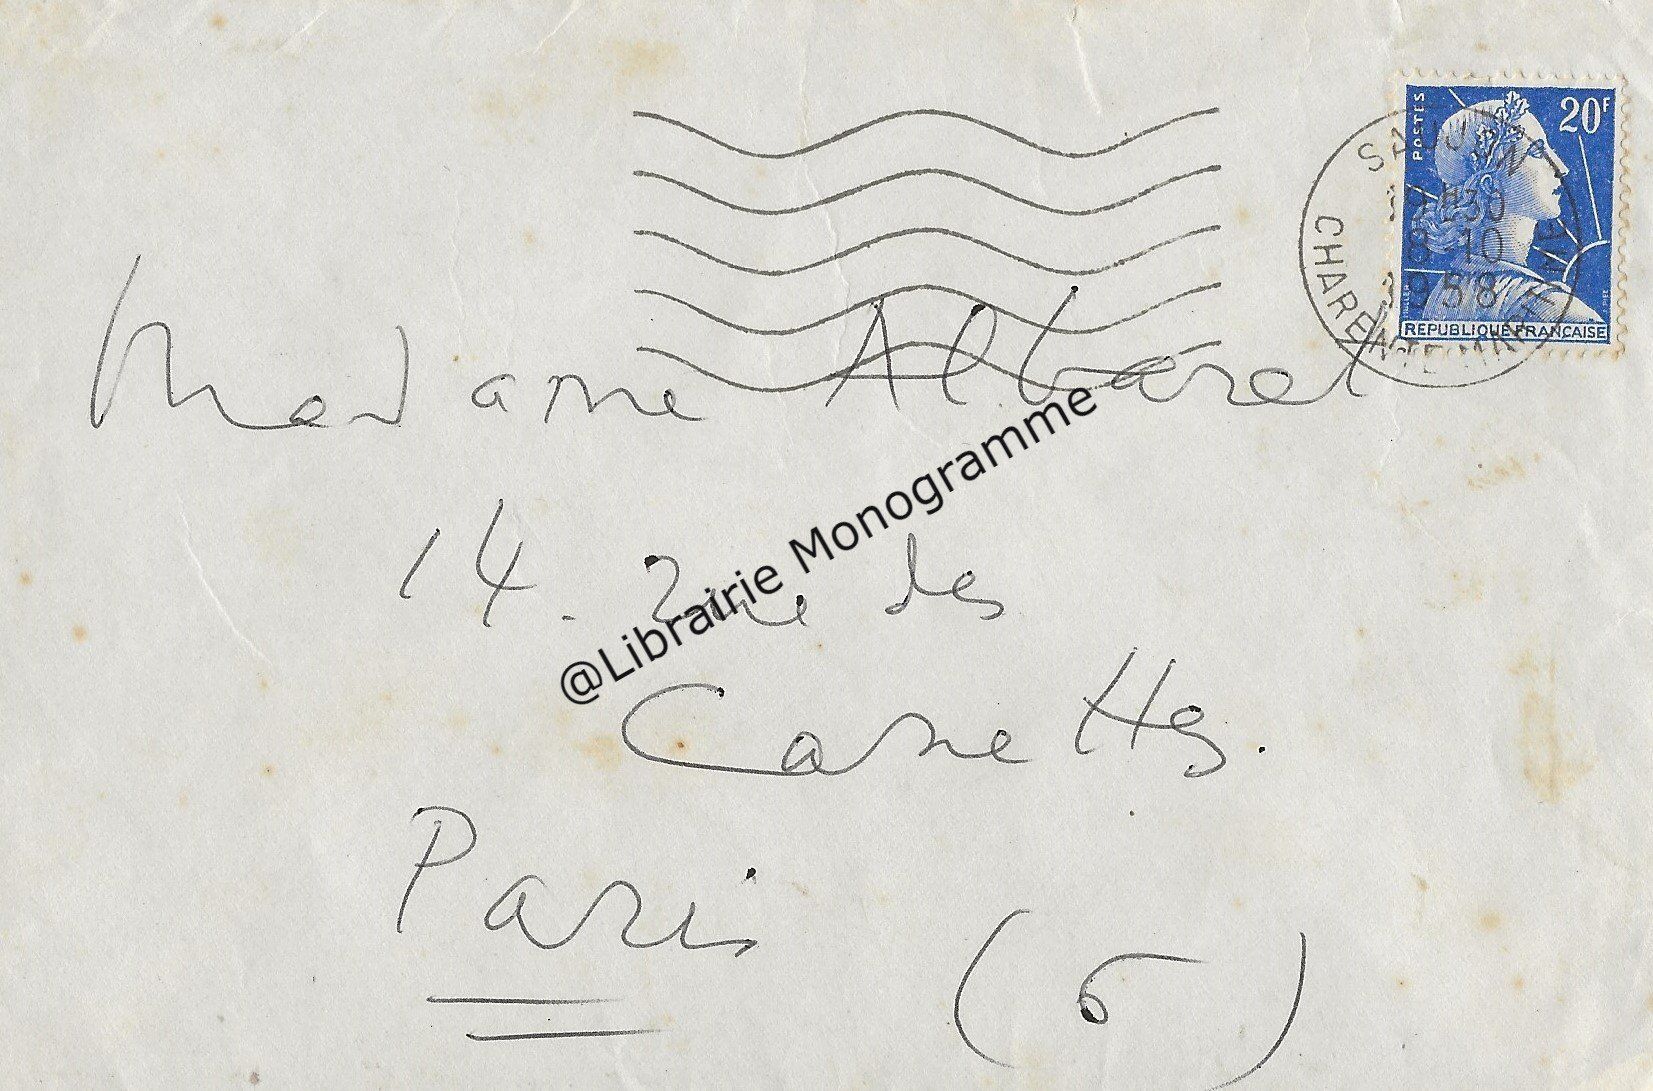 POSTES
20F
SAUJON
H30
8-10
1958
CHARENTE MARITIME
REPUBLIQUE FRANCAISE
Madame Albaret
14. Rue des
Canettes.
Paris
(6)
@Librairie Monogramme